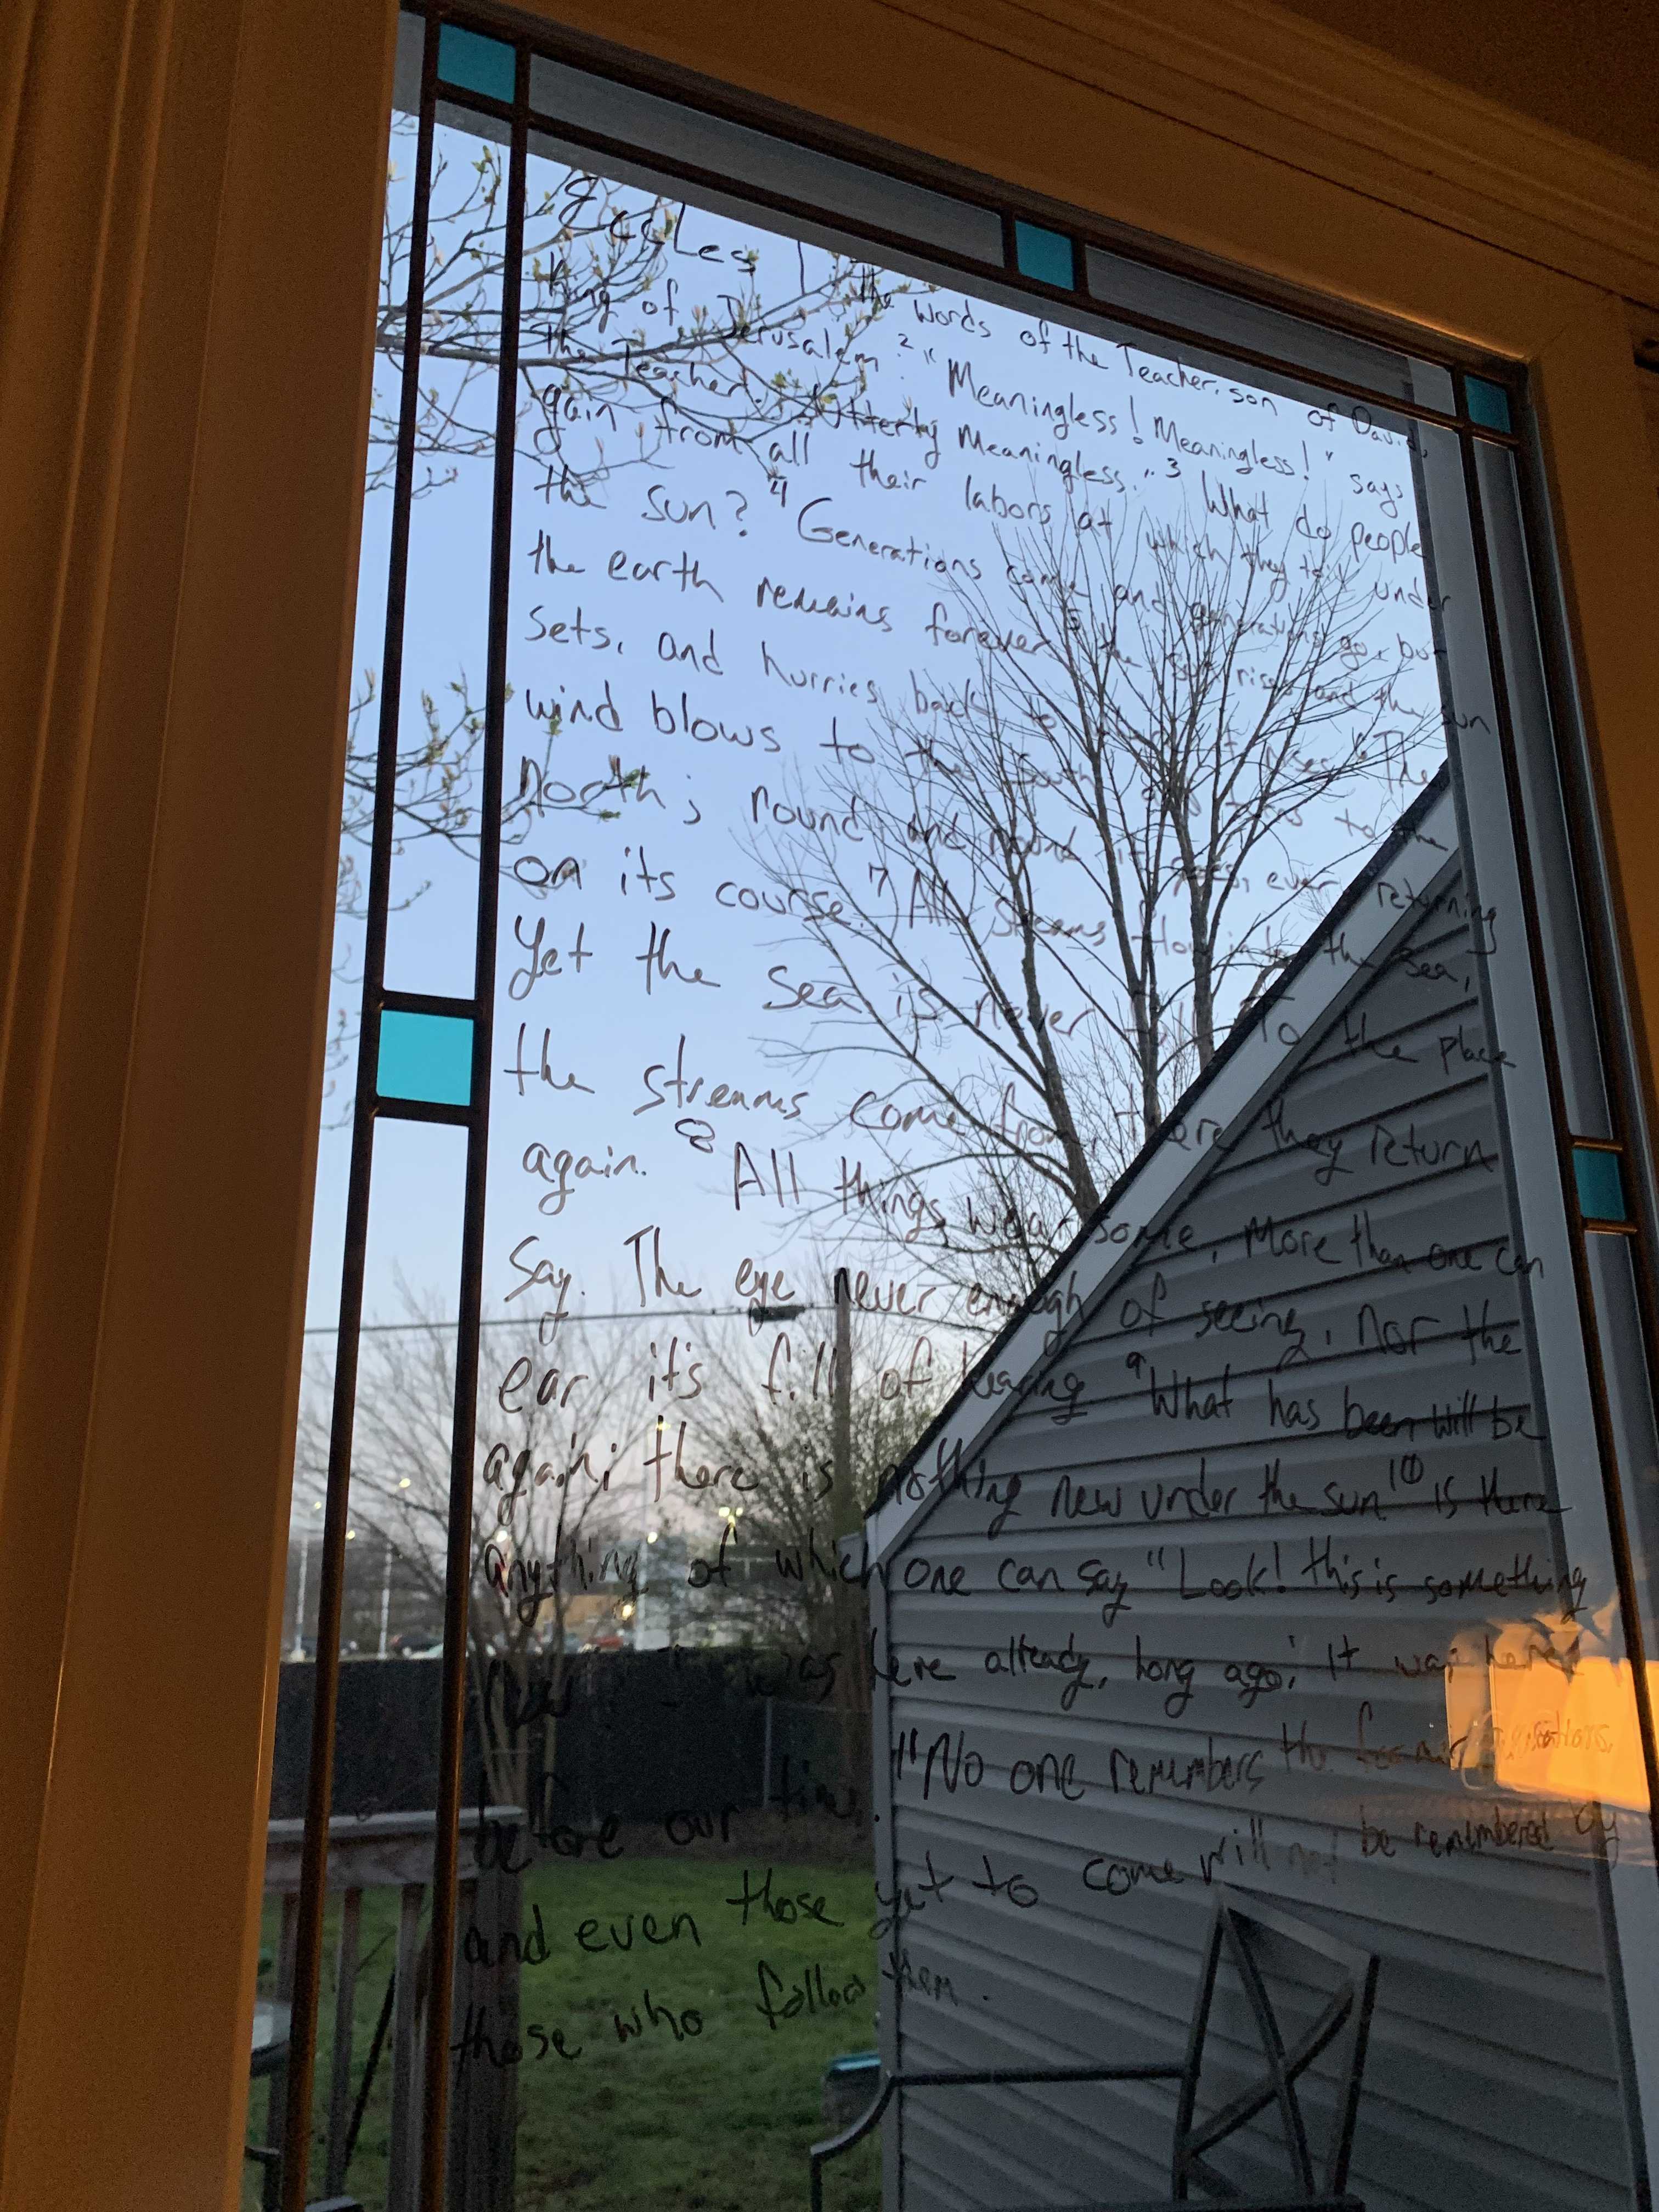 Eccles 1 the words of the Teacher, son of David,
King of Jerusalem 2 "Meaningless! Meaningless!" says
the Teacher. "Utterly Meaningless." 3 What do people
gain from all their labors at which they toil under
the sun? 4 Generations come and generations go, but
the earth remains forever 5 the sun rises and the sun
sets, and hurries back to it rises 6 The
wind blows to the south and to the
North; round and round it goes, ever returning
on its course. 7 All streams flow into the sea,
Yet the sea is never full. To the place
the streams come from, there they return
again. 8 All things wearisome, More than one can
say. The eye never enough of seeing, nor the
ear it's fill of hearing 9 What has been will be
again; there is nothing new under the sun 10 is there
anything of which one can say "Look! this is something
New" It was here already, long ago; it was here
before our time. 11 No one remembers the former generations,
and even those yet to come will not be remembered by
those who follow them.